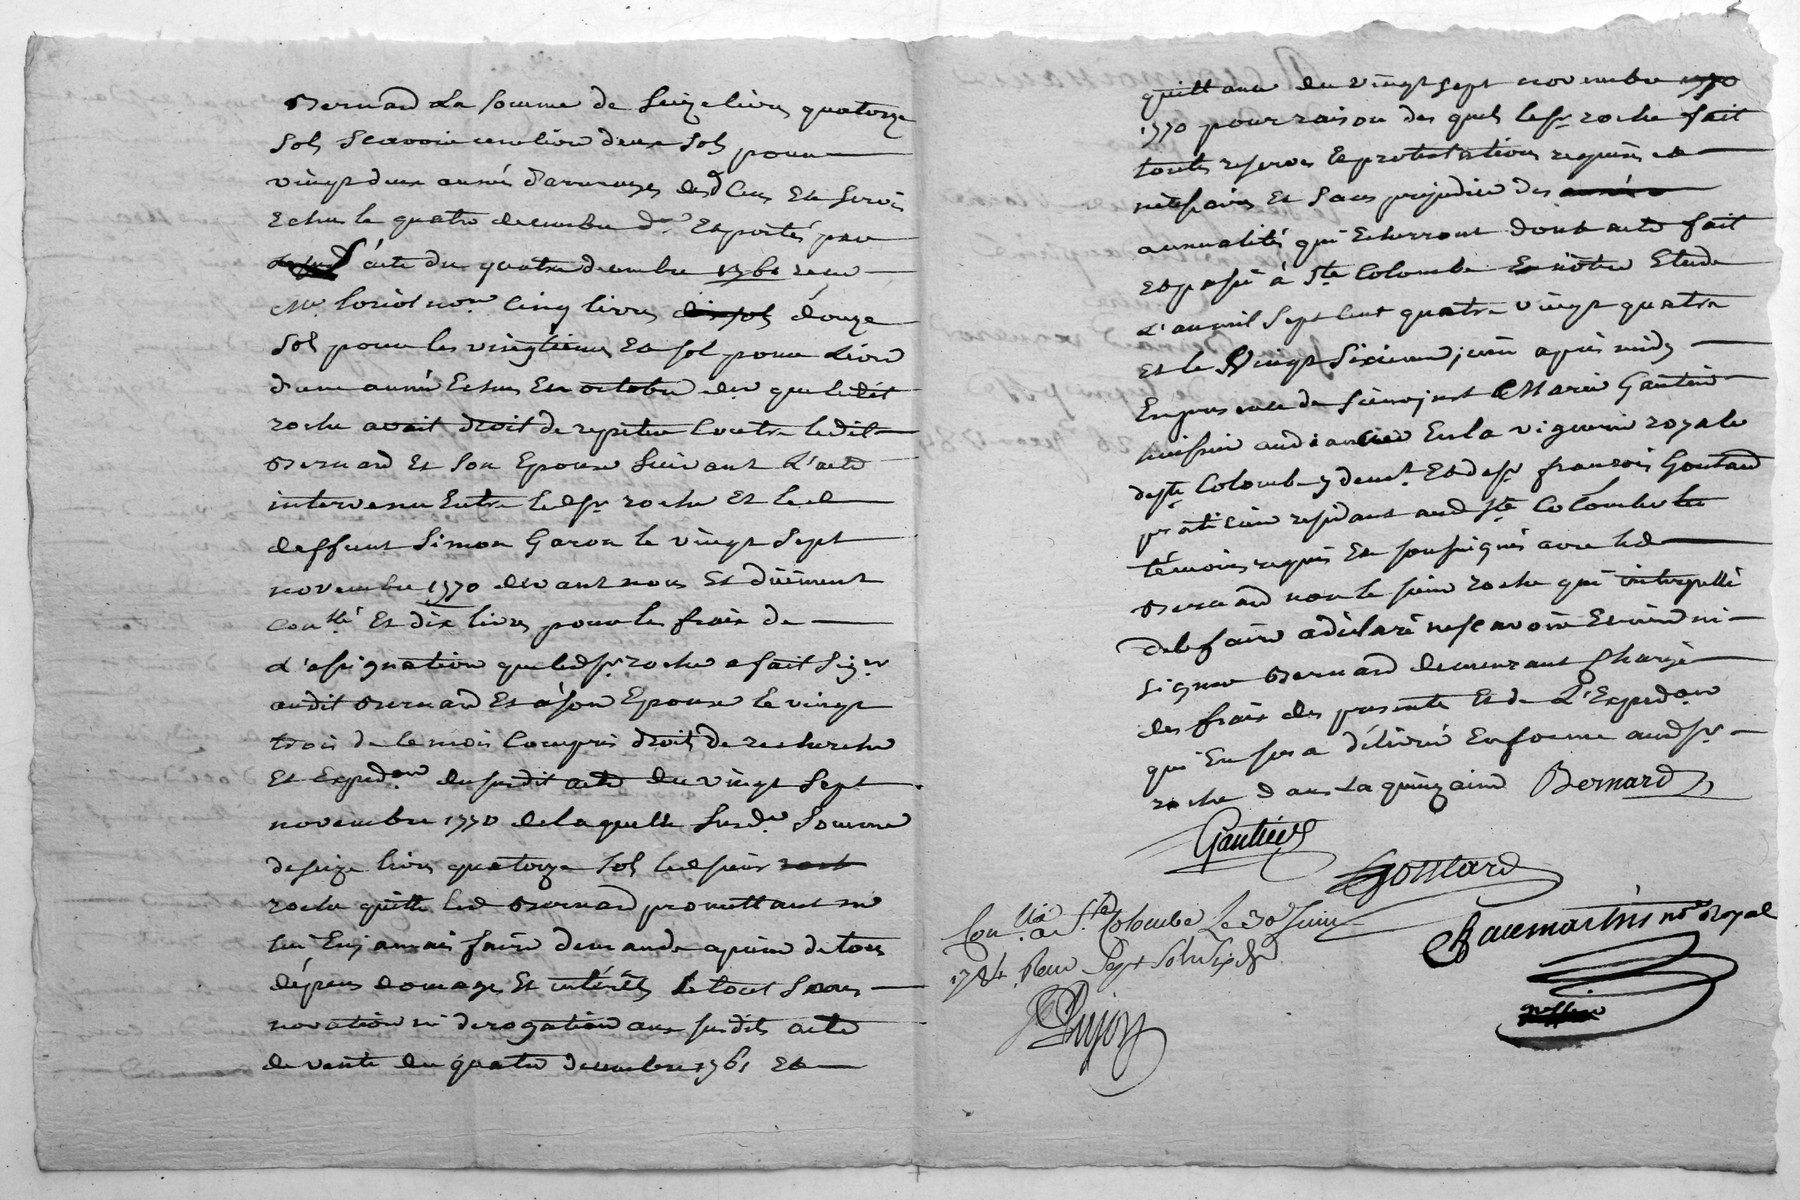 Bernard La somme de seize livres quatorze
sols scavoir une livre deux sols pour
vingt deux années d'arrerages desd Cens Et servis
Echus le quatre decembre dr. Et portés par
l'acte du quatre decembre 1761 recu
Me. loriol nore. Cinq livres dix sols douze
sols pour les vingtiemes Et sol pour Livre
d'une année Echus En octobre der que ledit
roche avait droit de repeter Contre ledit
Bernard Et son Epouse suivant L'acte
intervenu Entre led sr roche Et led
deffunt Simon Garon le vingt sept
novembre 1770 devant nous Et düement
conllé Et dix livres pour les frais de
L'assignation que led sr roche a fait sigr
audit Bernard Et a son Epouse le vingt
trois de ce mois Compris droit de recherche
Et Expedon du susdit acte du vingt sept
novembre 1770 de laquelle susde Somme
de seize livres quatorze sols led sieur roch
roche quitte led Bernard promettant ne
lui En jamais faire demande a peine de tous
dépens domages Et intérêts Le tout sans
novation ni derogation aux susdits acte
de vente du quatre decembre 1761 Et
quittance du vingt sept novembre 1770
1770 pour raison des quels le sr roche fait
toutes reserves Et protestations requises et
nécéssaires Et sans prejudice des année
annualités qui Echerront dont acte fait
et passé à Ste Colombe En nôtre Etude
L'an mil sept cent quatre vingt quatre
Et le vingt sixieme juin après midy
En presence de sieur just Marie Gautier
huissier audiancier En la viguerie royale
de Ste Colombe y demt. Et de sr françois Goutard
praticien residant aud Ste Colombe
témoins requis Et soussignés avec led
Bernard non le sieur roche qui interpellé
de le faire a déclaré ne scavoir Ecrire ni
signer Bernard demeurant Chargé
des frais des presente Et de L'Expedon
qui En sera délivré En forme aud sr
roche dans La quinzaine Bernard
Gautier
Goutard
Conllé a Ste Colombe Le 30 Juin
1784 Recu Sept sols six drs
Chaumartin nre Royal
Dujon